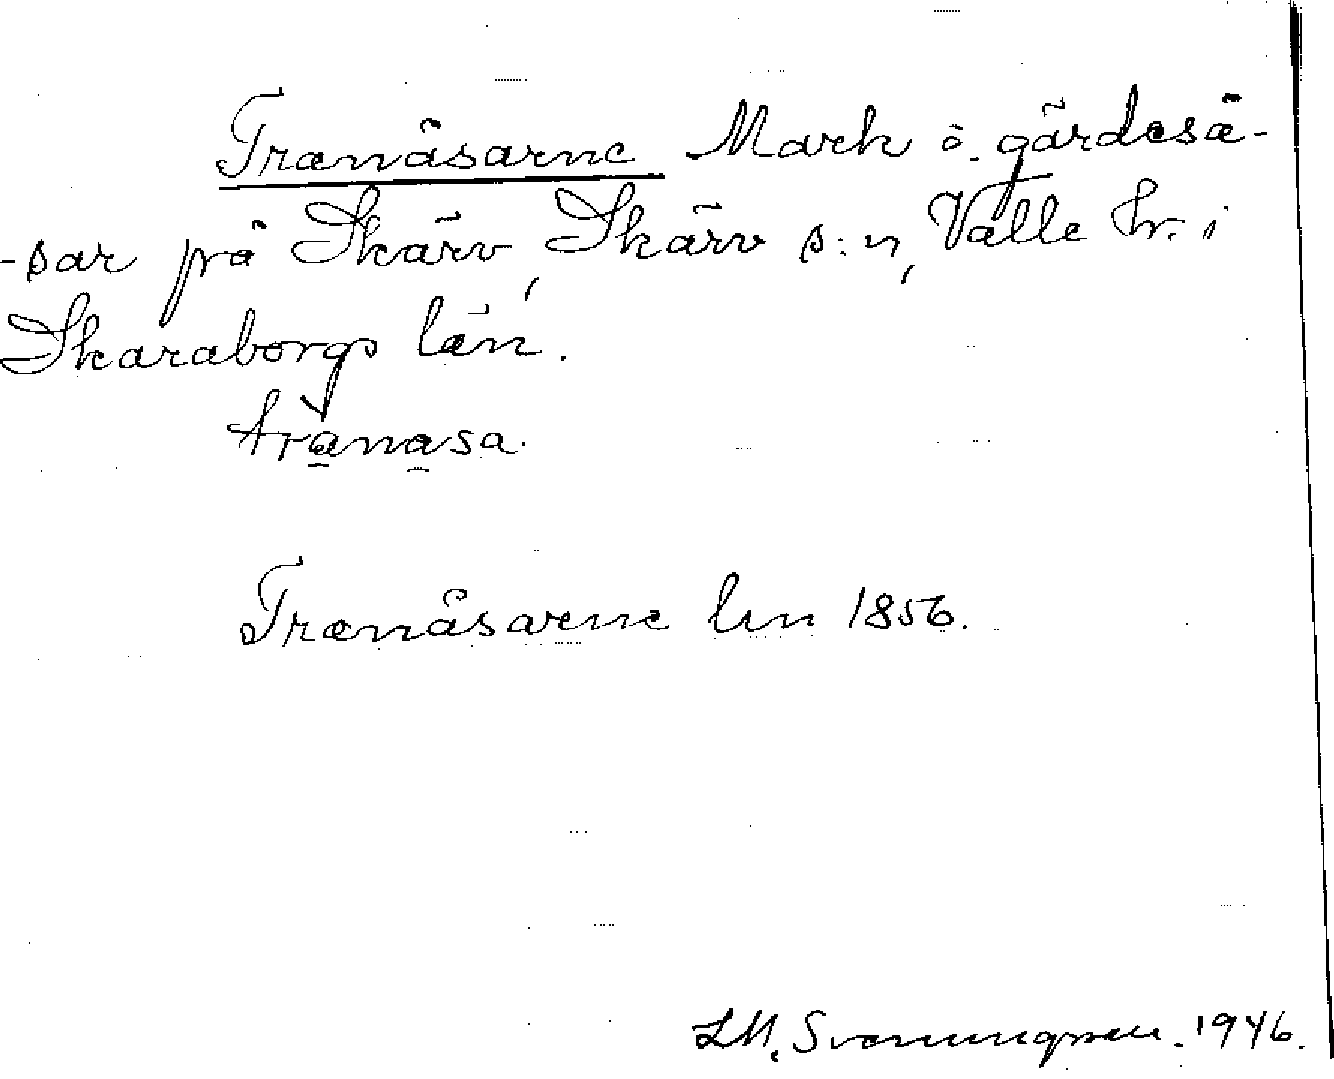 Tranåsarne Mark o. gärdeså-
-sar på Skärv, Skärv s:n, Valle hr. i
Skaraborgs län.
tranasa.
Tranåsarne lm 1856.
LM. Svanungsson. 1946.